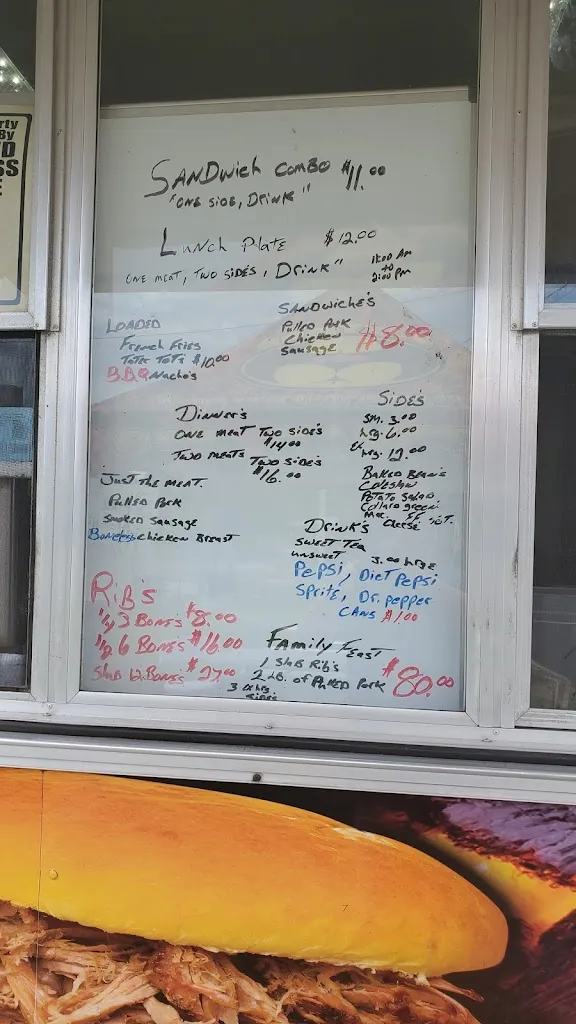 SANDWich COMBO $11.00
"ONE SIDE, DRINK"
LUNCH PlATE $12.00
ONE MEAT, TWO SIDES, DRINK"
11:00 AM
to
2:00 PM
LOADED
FRENCH FRIES
TOTER TOTS $10.00
B.B.Q NACHO'S
SANDWICHE'S
Pulled Pork
Chicken
Sausage
$8.00
DINNER'S
ONE MEAT TWO SIDE'S
$14.00
TWO MEATS TWO SIDE'S
$16.00
SIDE'S
SM. 3.00
Lrg. 6.00
12.00
BAKED BEAN'S
COleslaw
Potato Salad
Collard green
Mac
cheese
JUST THE MEAT.
Pulled Pork
Smoked Sausage
Boneless Chicken Breast
DRINK'S
SWEET TEA
UNSWEET
3.00 large
PEPSI, DIET PEPSI
Sprite, Dr. pepper
CANS $1.00
RIB'S
1/4 3 BONE'S $8.00
1/2 6 BONE'S $16.00
Slab 12 BONE'S $27.00
FAMILY FEAST
1 Slab Rib's
2 LB. of Pulled Pork
$80.00
3
sides